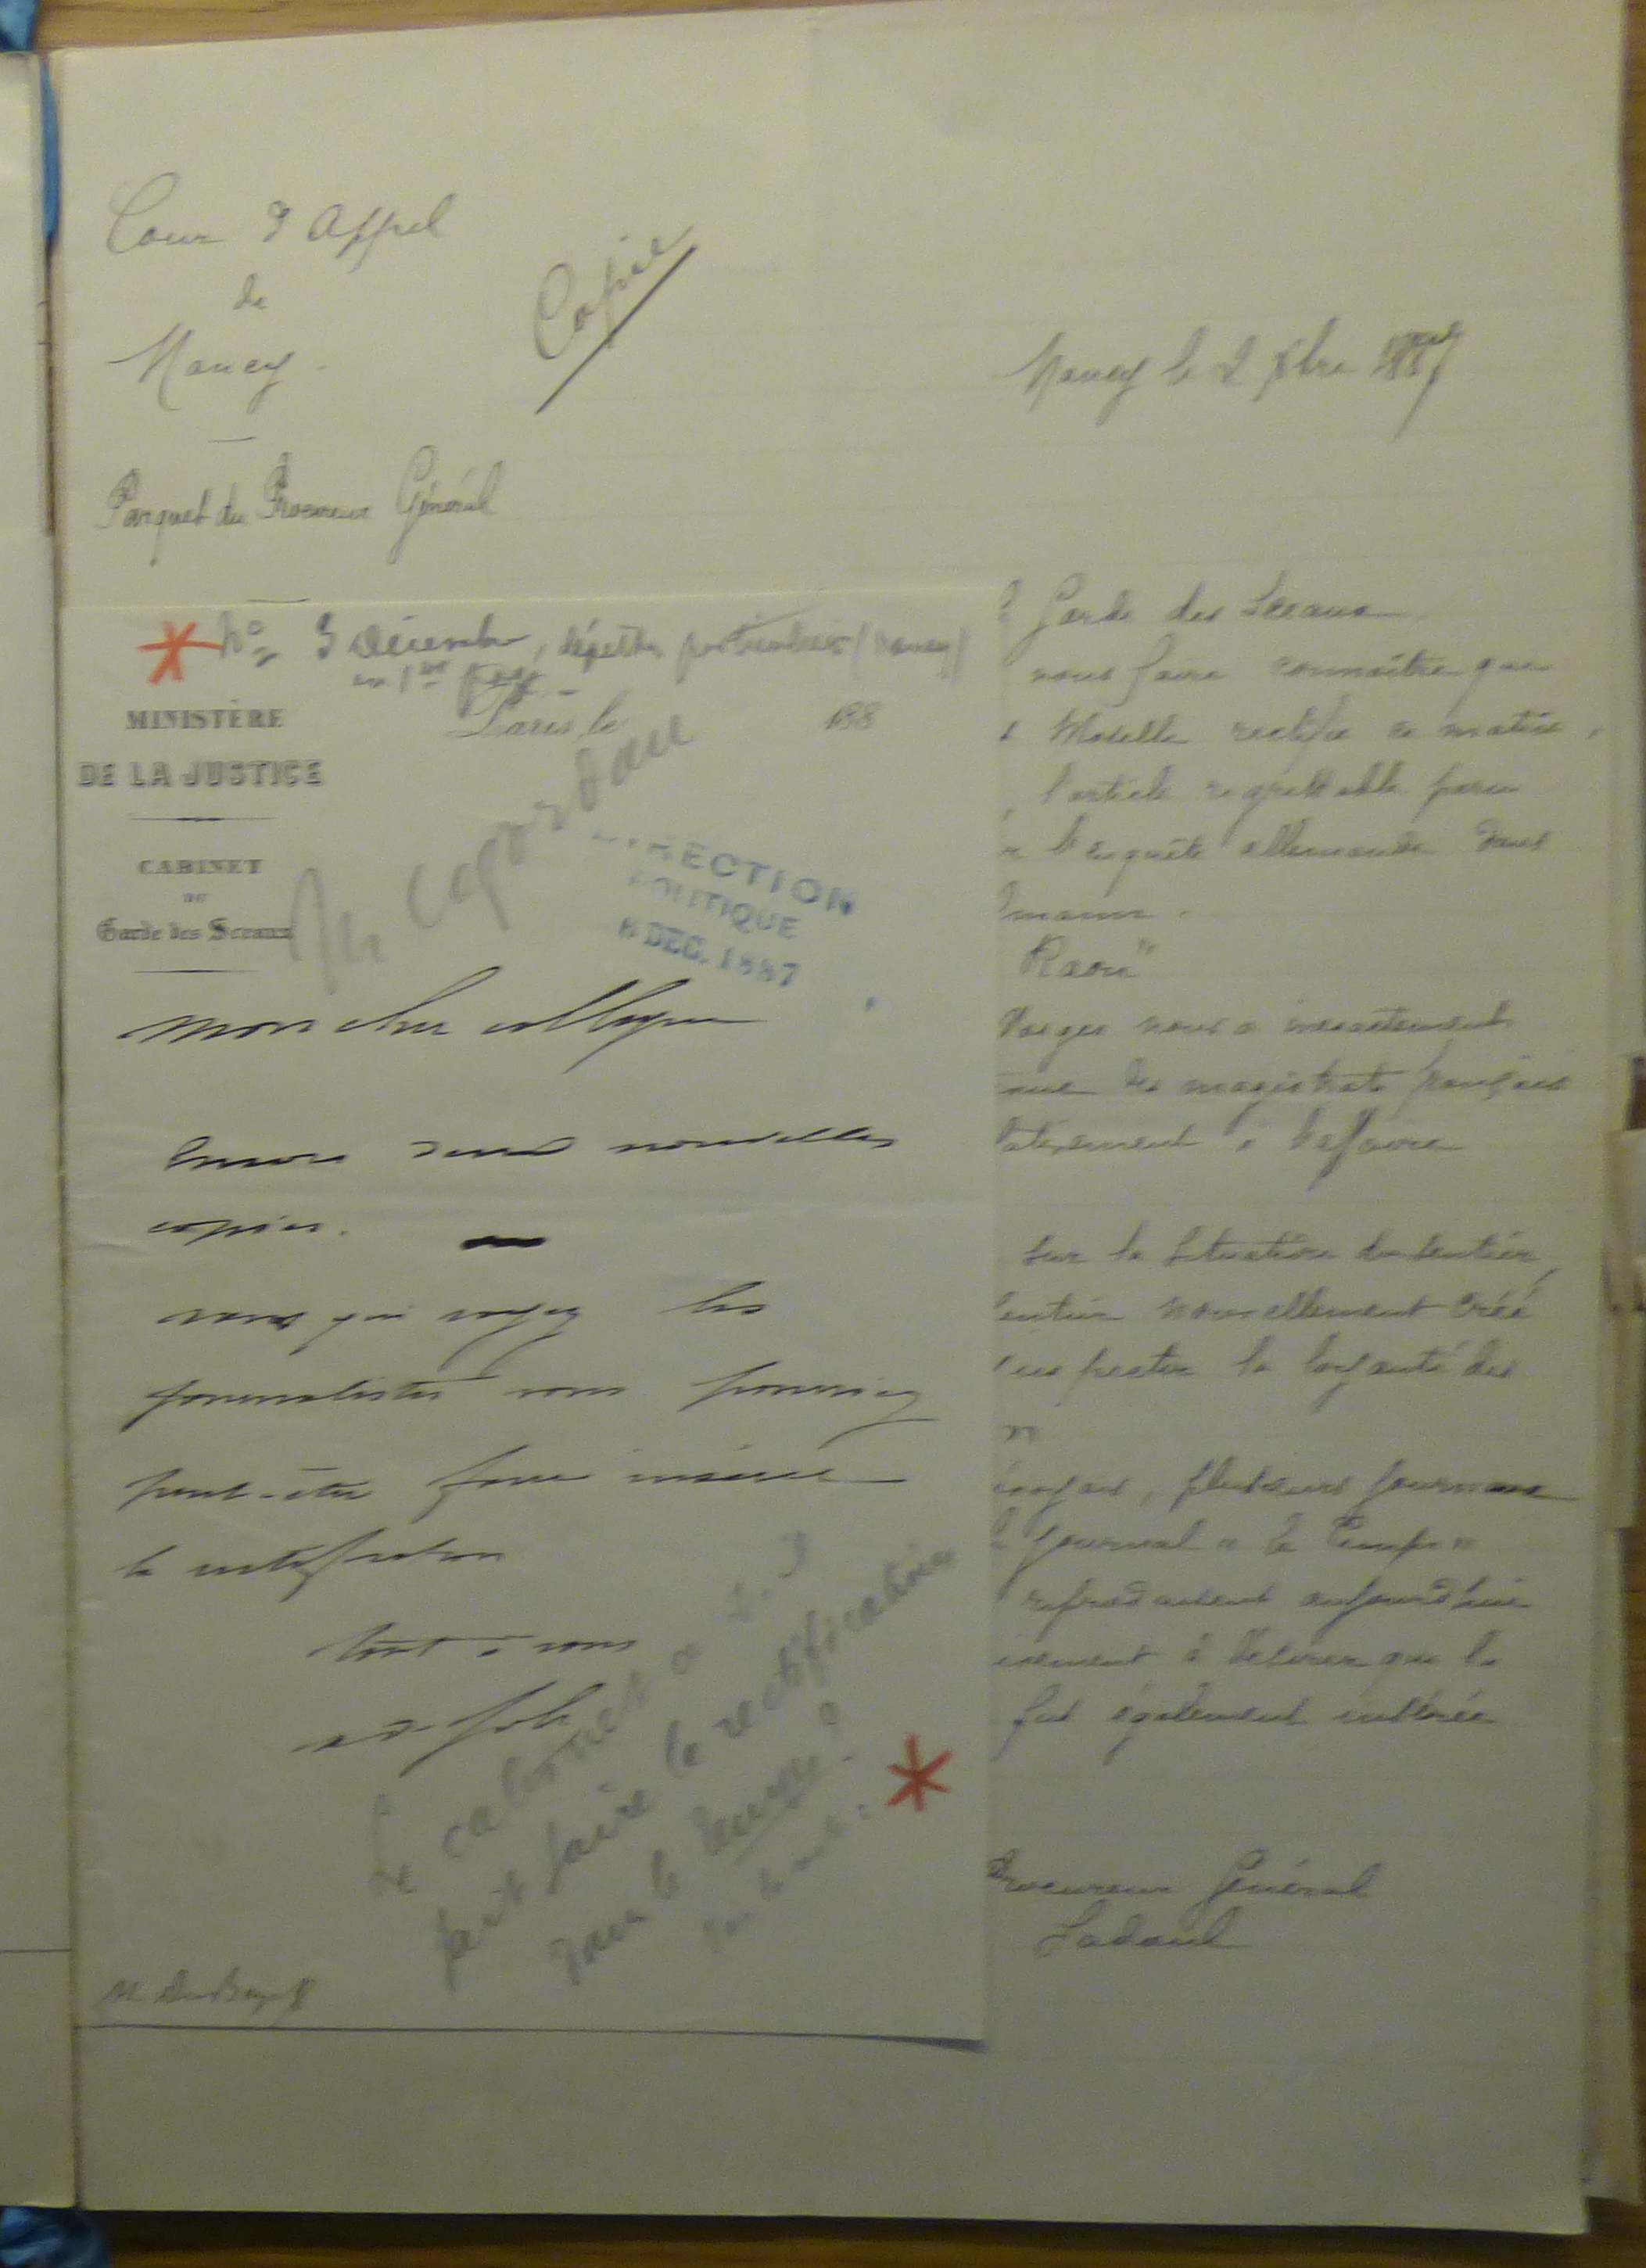 Cour d'Appel
de
Nancy
Copie
Nancy le 2 Xbre 1887
Parquet du Procureur Général
No 3 Décembre, dépêche particulière (Nancy)
en 1re page
MINISTÈRE
DE LA JUSTICE
Paris, le 188
CABINET
DU
Garde des Sceaux
DIRECTION
POLITIQUE
DEC. 1887
Mon cher collègue
Encore deux nouvelles
copies.
vous qui voyez les
journalistes vous pourriez
peut-être faire insérer
la rectification
tout à vous
Le cabinet a-t-il
fait faire la rectification
dans le Temps?
Garde des Sceaux
nous faire connaître que
Moselle rectifie ce matin,
l'article regrettable paru
l'enquête allemande dans
Raon"
Vosges nous a inexactement
des magistrats français
à l'affaire
sur la situation du sentier,
sentier nouvellement créé
suspecter la loyauté des
plusieurs journaux
journal "le Temps"
reproduisent aujourd'hui
à désirer que la
fut également insérée
Procureur Général
Sadoul